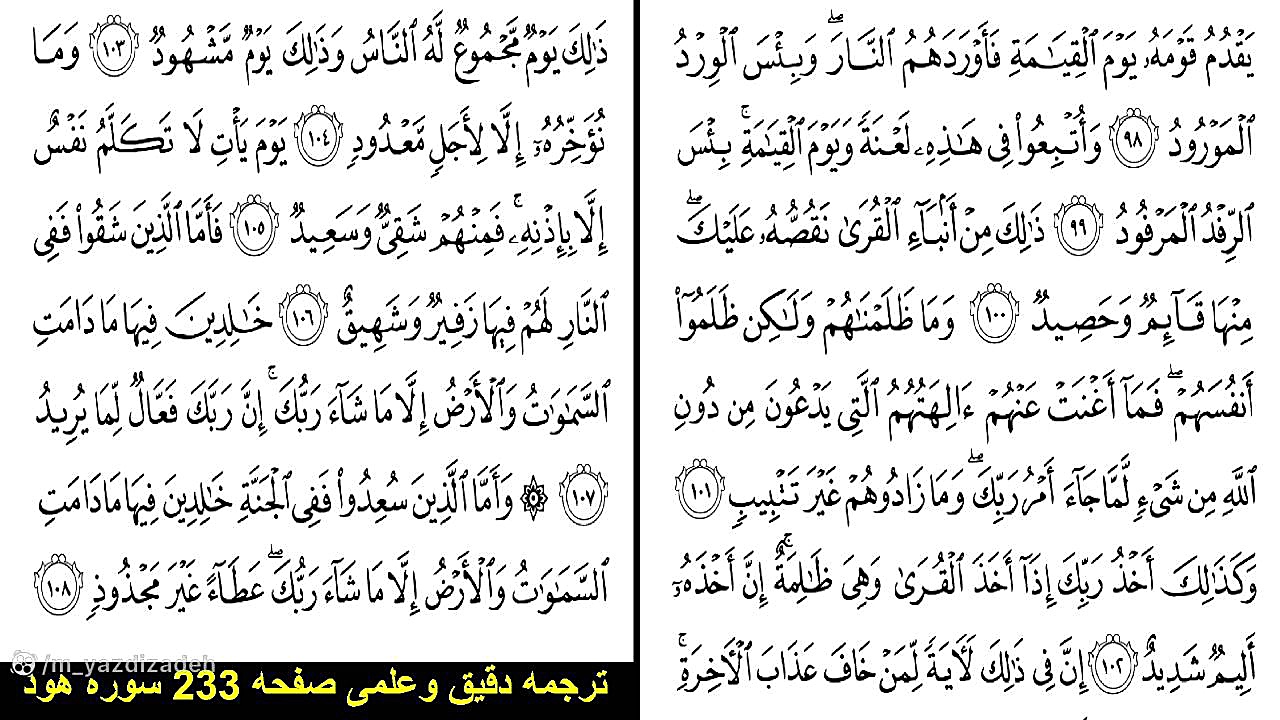 يَقْدُمُ قَوْمَهُۥ يَوْمَ ٱلْقِيَـٰمَةِ فَأَوْرَدَهُمُ ٱلنَّارَ ۖ وَبِئْسَ ٱلْوِرْدُ
ٱلْمَوْرُودُ ٩٨ وَأُتْبِعُوا۟ فِى هَـٰذِهِۦ لَعْنَةً وَيَوْمَ ٱلْقِيَـٰمَةِ ۚ بِئْسَ
ٱلرِّفْدُ ٱلْمَرْفُودُ ٩٩ ذَٰلِكَ مِنْ أَنۢبَآءِ ٱلْقُرَىٰ نَقُصُّهُۥ عَلَيْكَ ۖ
مِنْهَا قَآئِمٌ وَحَصِيدٌ ١٠٠ وَمَا ظَلَمْنَـٰهُمْ وَلَـٰكِن ظَلَمُوٓا۟
أَنفُسَهُمْ ۖ فَمَآ أَغْنَتْ عَنْهُمْ ءَالِهَتُهُمُ ٱلَّتِى يَدْعُونَ مِن دُونِ
ٱللَّهِ مِن شَىْءٍ لَّمَّا جَآءَ أَمْرُ رَبِّكَ ۖ وَمَا زَادُوهُمْ غَيْرَ تَتْبِيبٍ ١٠١
وَكَذَٰلِكَ أَخْذُ رَبِّكَ إِذَآ أَخَذَ ٱلْقُرَىٰ وَهِىَ ظَـٰلِمَةٌ ۚ إِنَّ أَخْذَهُۥٓ
أَلِيمٌ شَدِيدٌ ١٠٢ إِنَّ فِى ذَٰلِكَ لَـَٔايَةً لِّمَنْ خَافَ عَذَابَ ٱلْـَٔاخِرَةِ ۚ
ذَٰلِكَ يَوْمٌ مَّجْمُوعٌ لَّهُ ٱلنَّاسُ وَذَٰلِكَ يَوْمٌ مَّشْهُودٌ ١٠٣ وَمَا
نُؤَخِّرُهُۥٓ إِلَّا لِأَجَلٍ مَّعْدُودٍ ١٠٤ يَوْمَ يَأْتِ لَا تَكَلَّمُ نَفْسٌ
إِلَّا بِإِذْنِهِۦ ۚ فَمِنْهُمْ شَقِىٌّ وَسَعِيدٌ ١٠٥ فَأَمَّا ٱلَّذِينَ شَقُوا۟ فَفِى
ٱلنَّارِ لَهُمْ فِيهَا زَفِيرٌ وَشَهِيقٌ ١٠٦ خَـٰلِدِينَ فِيهَا مَا دَامَتِ
ٱلسَّمَـٰوَٰتُ وَٱلْأَرْضُ إِلَّا مَا شَآءَ رَبُّكَ ۚ إِنَّ رَبَّكَ فَعَّالٌ لِّمَا يُرِيدُ
١٠٧ ۞ وَأَمَّا ٱلَّذِينَ سُعِدُوا۟ فَفِى ٱلْجَنَّةِ خَـٰلِدِينَ فِيهَا مَا دَامَتِ
ٱلسَّمَـٰوَٰتُ وَٱلْأَرْضُ إِلَّا مَا شَآءَ رَبُّكَ ۖ عَطَآءً غَيْرَ مَجْذُوذٍ ١٠٨
/m_yazdizadeh
ترجمه دقیق وعلمی صفحه 233 سوره هود